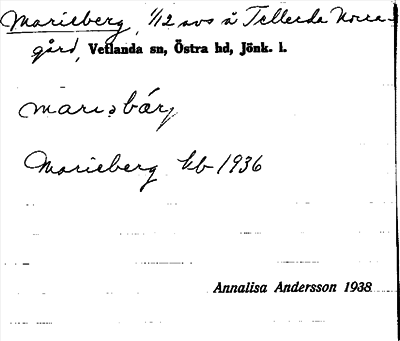 Marieberg, 1/12 avs å Tellerda Norra-
gård, Vetlanda sn, Östra hd, Jönk. l.
marıəbárj
Marieberg kb 1936
Annalisa Andersson 1938